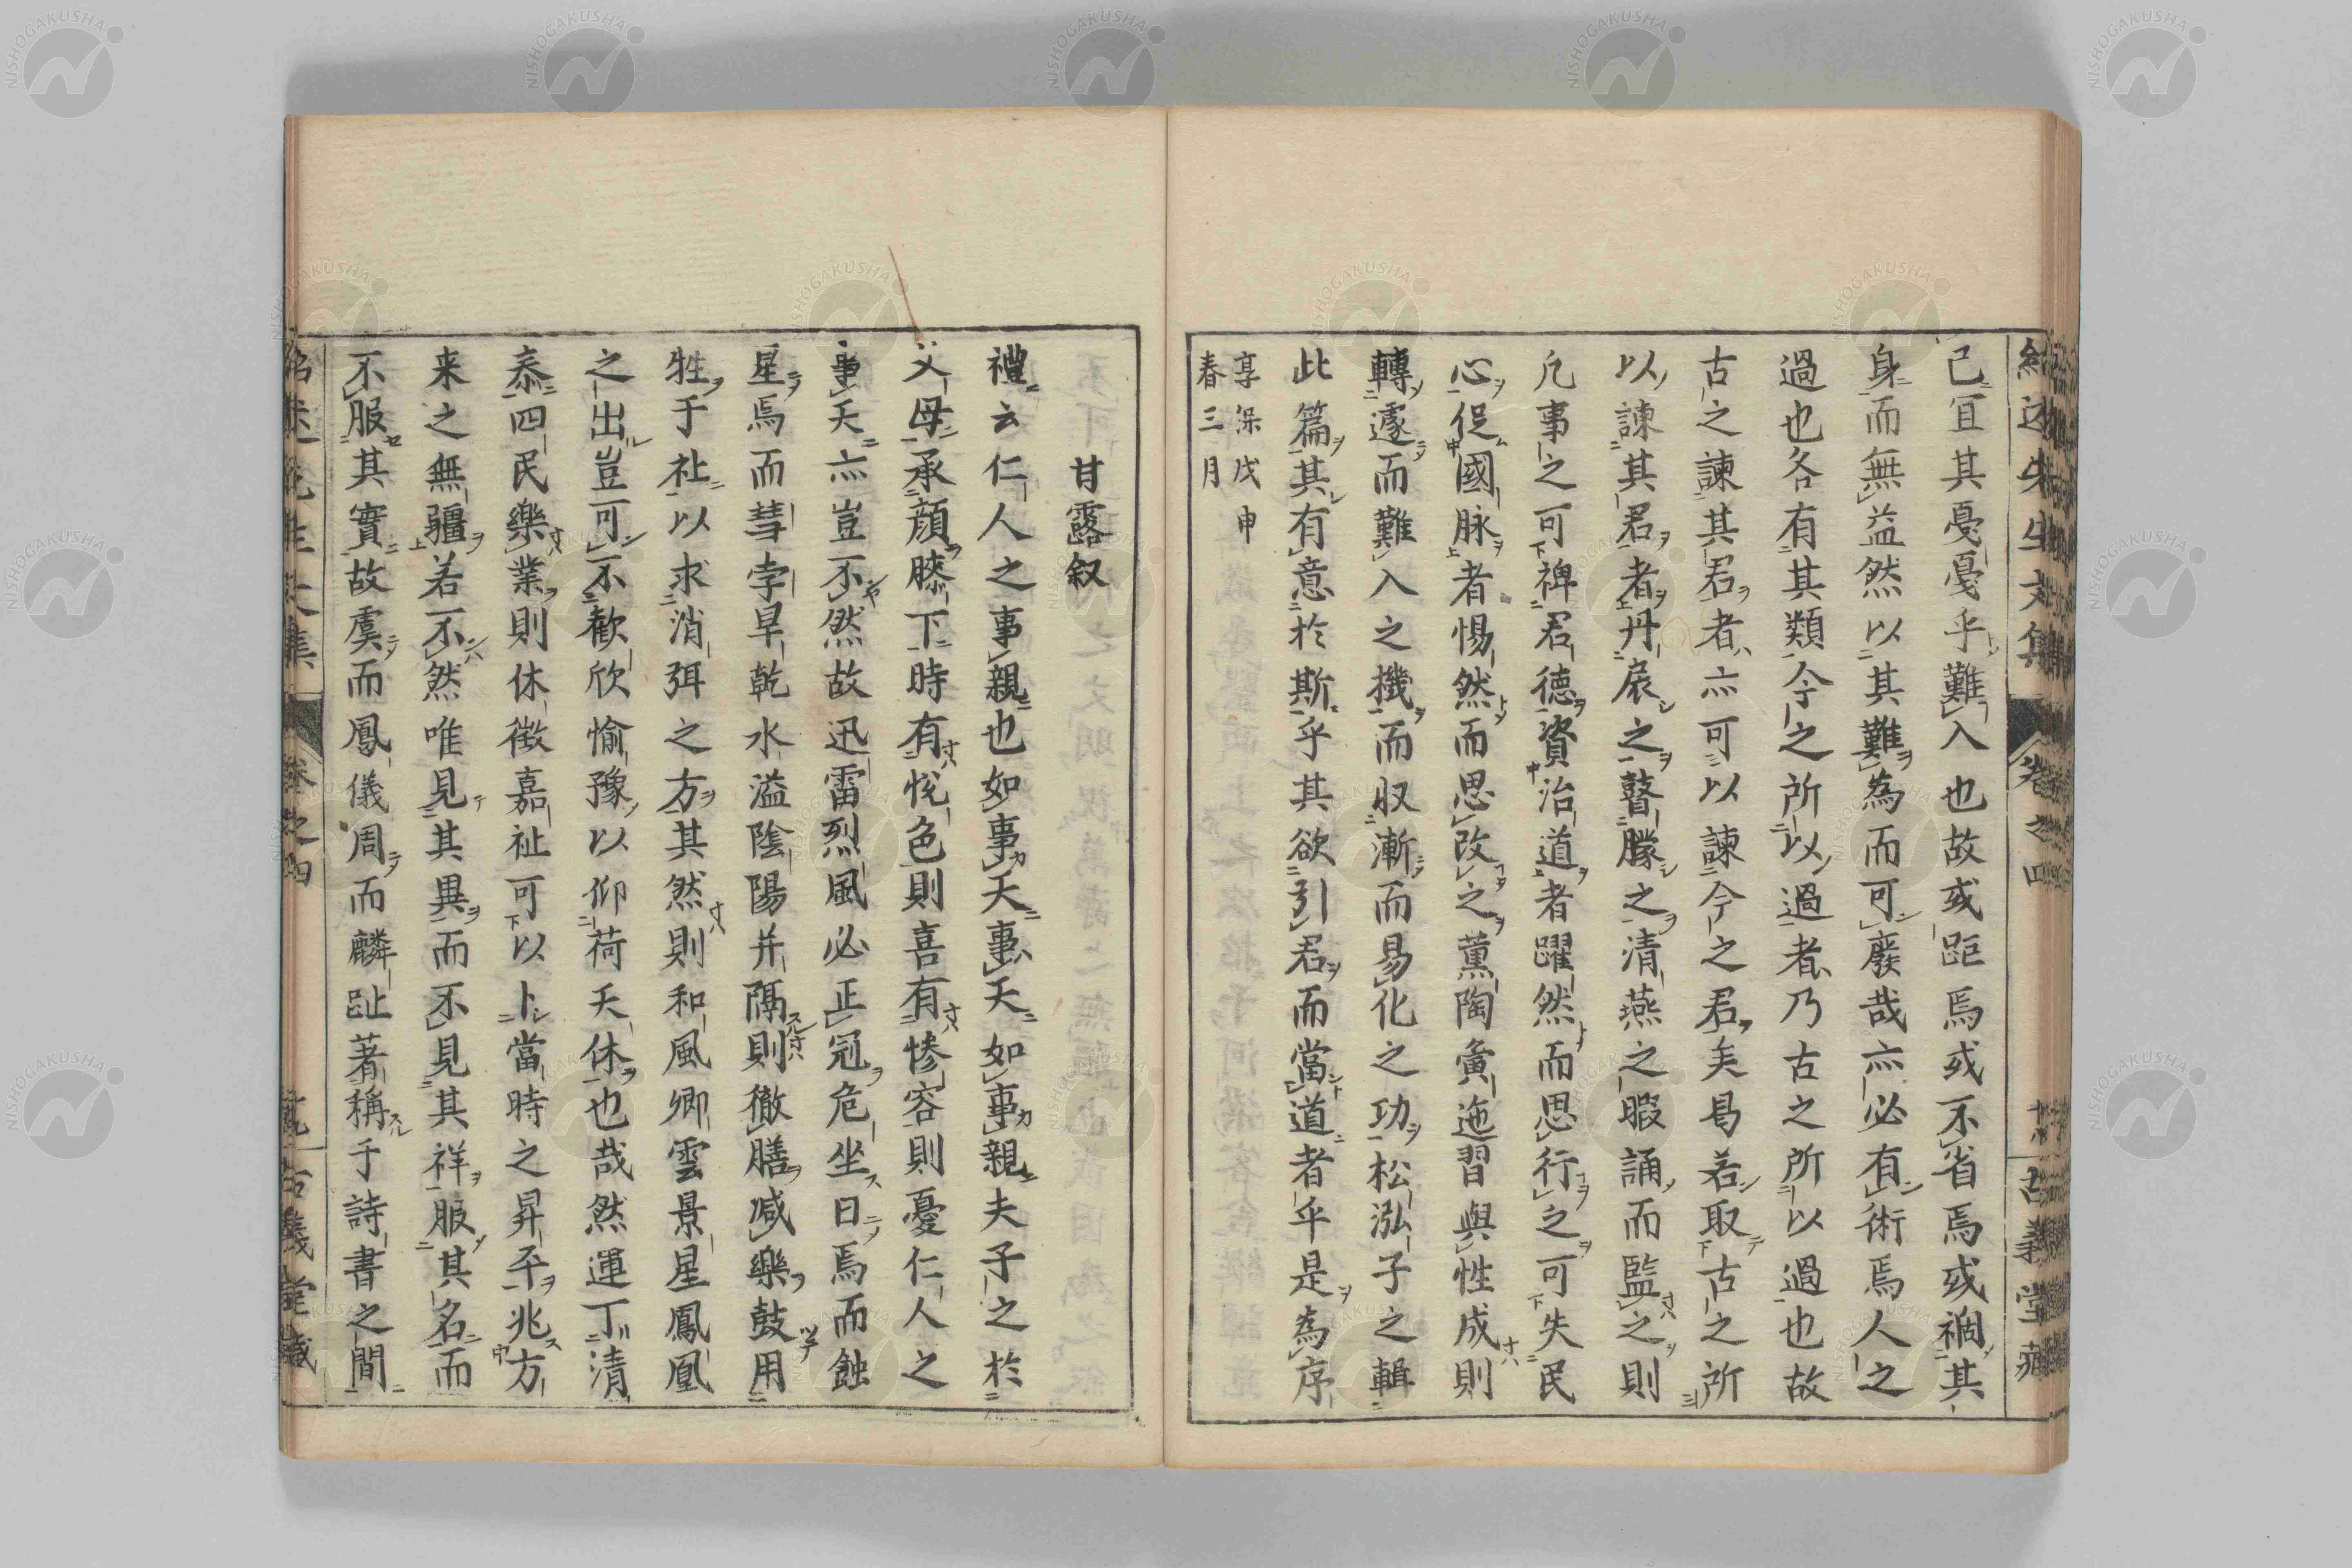 紹述先生文集 卷之四 十八 古義堂藏
己宜其憂憂乎難入也故或距焉或不省焉或禍其
身而無益然以其難為而可廢哉亦必有術焉人之
過也各有其類今之所以過者乃古之所以過也故
古之諫其君者亦可以諫今之君矣曷若取古之所
以諫其君者丹扆之瞽矇之清燕之暇誦而監之則
凡事之可裨君德資治道者躍然而思行之可失民
心促國脉者惕然而思改之薰陶漸迤習與性成則
轉遽而難入之機而収漸而易化之功松泓子之輯
此篇其有意於斯乎其欲引君而當道者乎是為序
享保戊申
春三月
甘露叙
禮云仁人之事親也如事天事天如事親夫子之於
父母承顔膝下時有悅色則喜有慘容則憂仁人之
事天亦豈不然故迅雷烈風必正冠危坐日焉而蝕
星焉而彗孛旱乾水溢陰陽并隔則徹膳减樂鼓用
牲于社以求消弭之方其然則和風卿雲景星鳳凰
之出豈可不歡欣愉豫以仰荷天休也哉然運丁清
泰四民樂業則休徵嘉祉可以卜當時之昇平兆方
来之無疆若不然唯見其異而不見其祥服其名而
不服其實故虞而鳳儀周而麟趾著稱于詩書之間
紹述先生文集 卷之四 古義堂藏